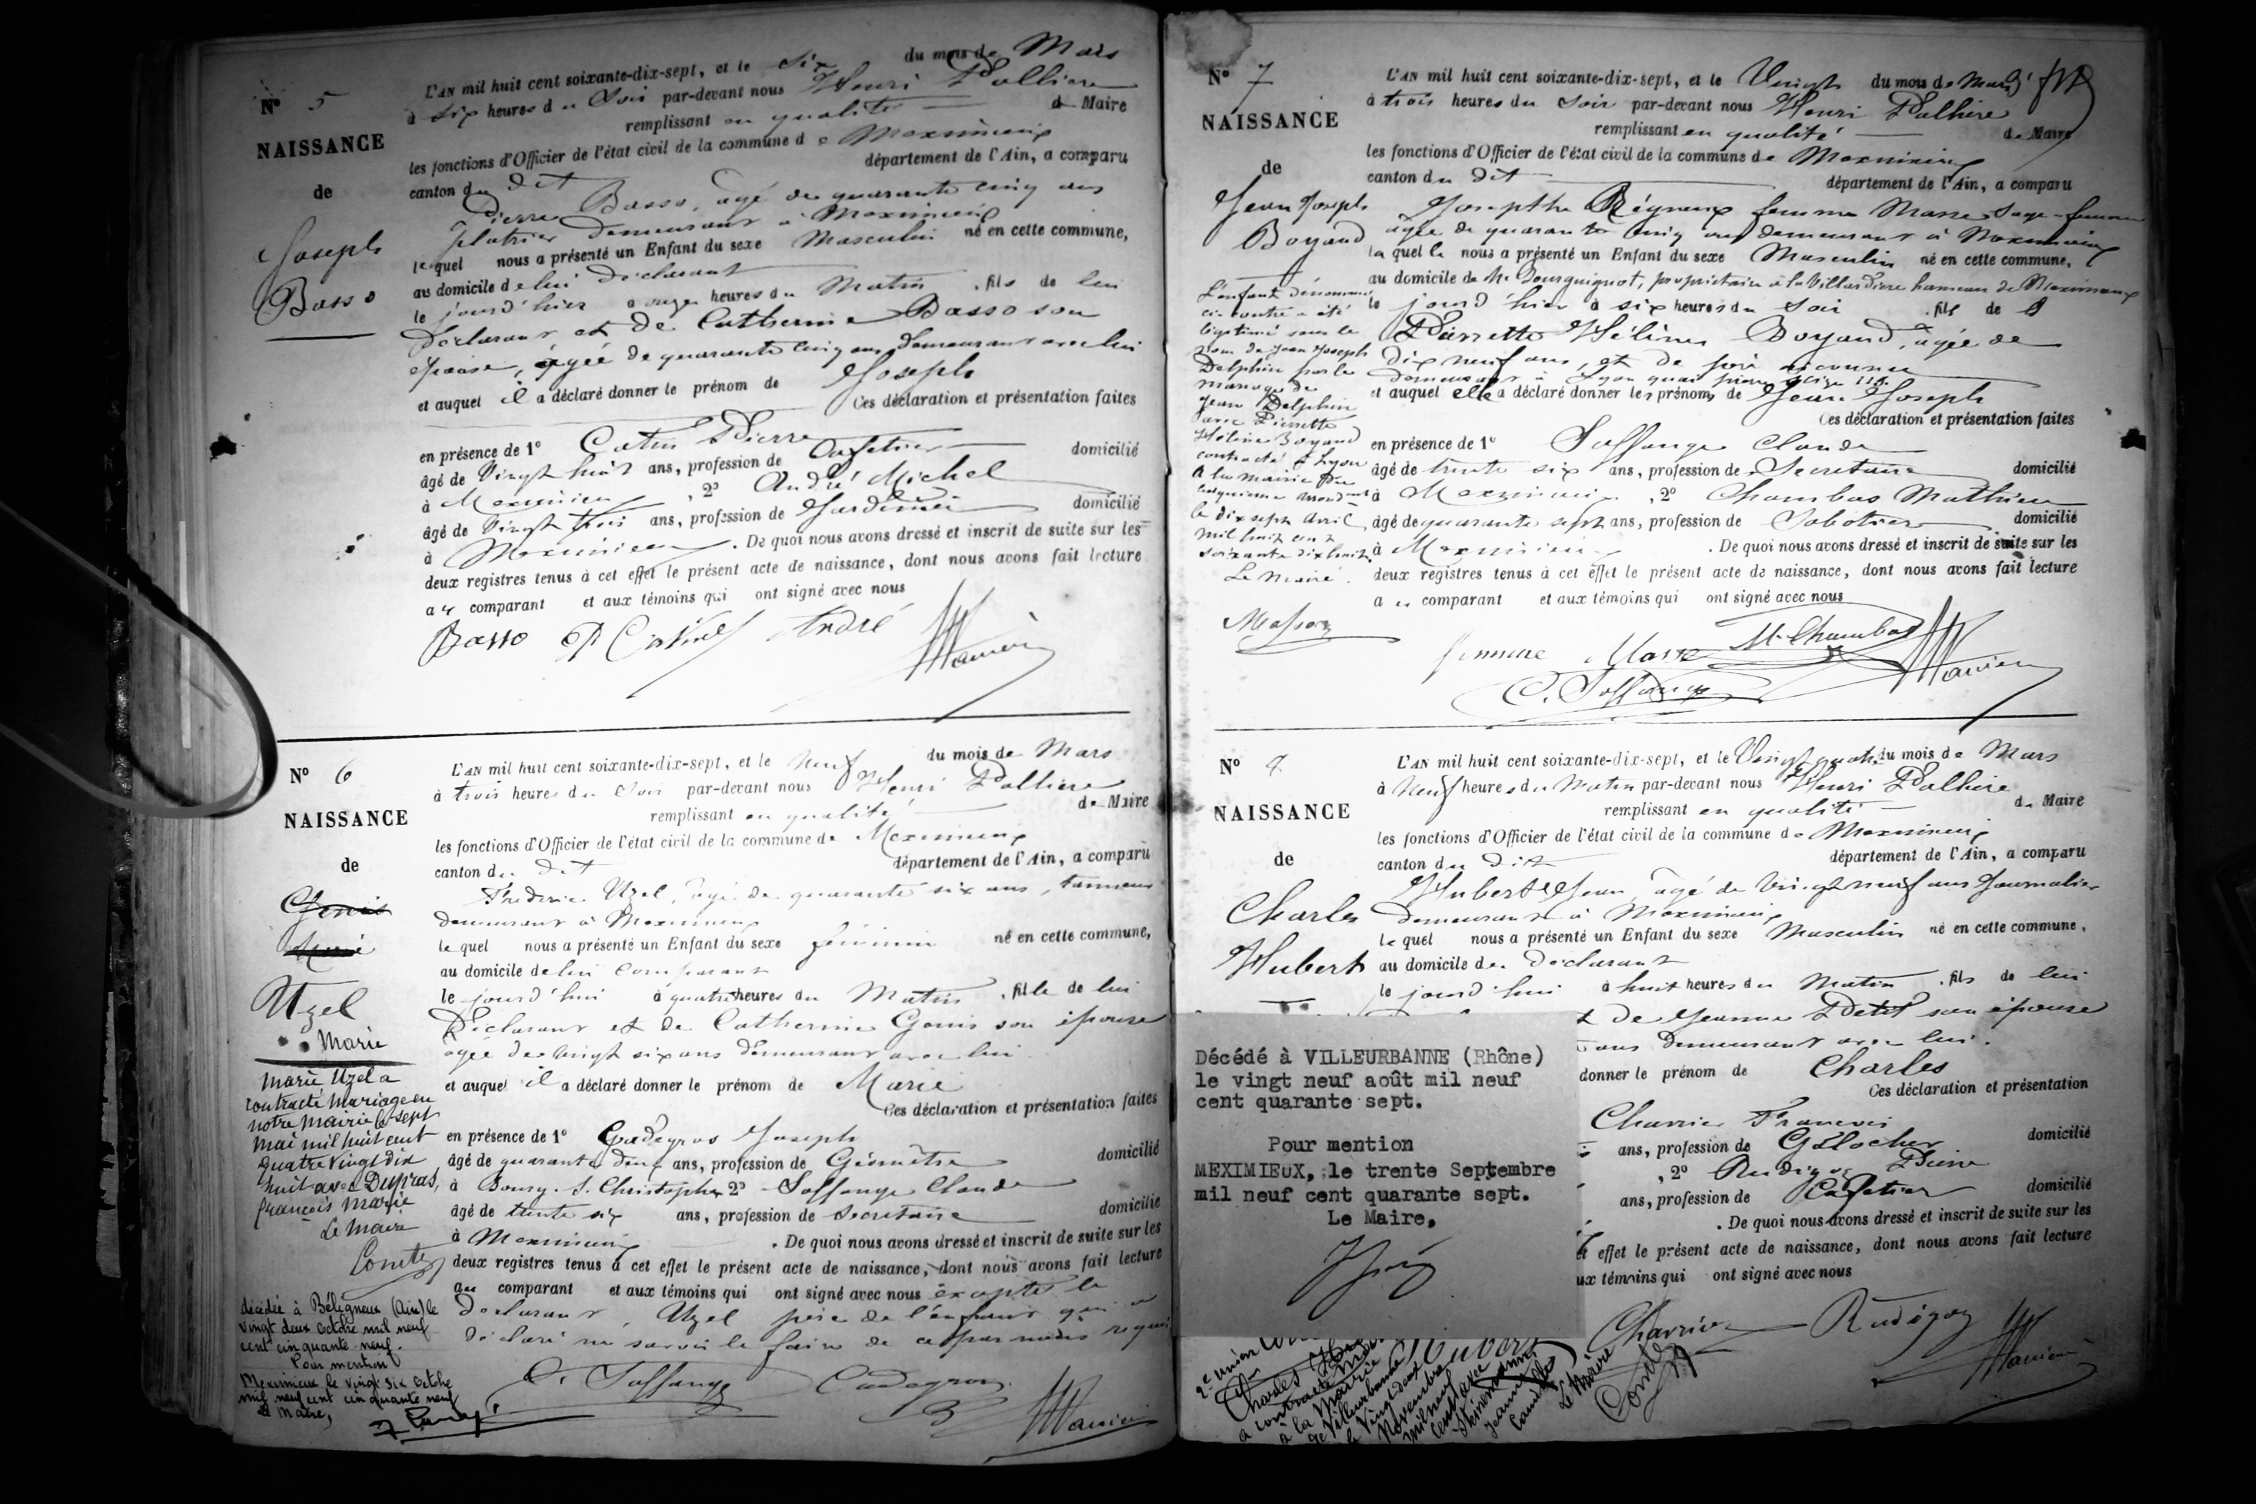 Nº 5
NAISSANCE
de
Joseph
Basso
L'AN mil huit cent soixante-dix-sept, et le Six du mois de Mars
à six heures du Soir par-devant nous Henri Pallière
remplissant en qualité de Maire
les fonctions d'Officier de l'état civil de la commune de Meximieux
canton du dit département de l'Ain, a comparu
Pierre Basso, agé de quarante cinq ans
platrier demeurant à Meximieux
lequel nous a présenté un Enfant du sexe Masculin né en cette commune,
au domicile de lui déclarant
le jourd'hier à onze heures du Matin, fils de lui
déclarant et de Catherine Basso son
épouse, agée de quarante cinq ans demeurant avec lui
et auquel il a déclaré donner le prénom de Joseph
Ces déclaration et présentation faites
en présence de 1º Pierre
âgé de Vingt huit ans, profession de Cafetier domicilié
à Meximieux, 2º André Michel
âgé de Vingt trois ans, profession de Jardinier domicilié
à Meximieux. De quoi nous avons dressé et inscrit de suite sur les
deux registres tenus à cet effet le présent acte de naissance, dont nous avons fait lecture
au comparant et aux témoins qui ont signé avec nous
Basso André
Nº 6
NAISSANCE
de
Uzel
Marie
Marie Uzel a
contracté mariage en
notre mairie le sept
mai mil huit cent
quatre vingt dix
huit avec Dupras,
françois Marie
Le Maire
décédée à Béligneux (Ain) le
vingt deux octobre mil neuf
cent cinquante neuf.
Pour mention
Meximieux le vingt six octobre
mil neuf cent cinquante neuf
Le Maire,
L'AN mil huit cent soixante-dix-sept, et le Neuf du mois de Mars
à trois heures du Soir par-devant nous Henri Pallière
remplissant en qualité de Maire
les fonctions d'Officier de l'état civil de la commune de Meximieux
canton du dit département de l'Ain, a comparu
Frédéric Uzel, agé de quarante six ans, tanneur
demeurant à Meximieux
lequel nous a présenté un Enfant du sexe féminin né en cette commune,
au domicile de lui comparant
le jourd'hui à quatre heures du Matin, fille de lui
Déclarant et de Catherine son épouse
agée de vingt six ans demeurant avec lui
et auquel il a déclaré donner le prénom de Marie
Ces déclaration et présentation faites
en présence de 1º Joseph
âgé de quarante deux ans, profession de Géomètre domicilié
à Bourg-S. Christophe, 2º Soffange Claude
âgé de trente six ans, profession de Secrétaire domicilié
à Meximieux. De quoi nous avons dressé et inscrit de suite sur les
deux registres tenus à cet effet le présent acte de naissance, dont nous avons fait lecture
au comparant et aux témoins qui ont signé avec nous excepté le
déclarant Uzel père de l'enfant qui a
déclaré ne savoir le faire de ce par nous requis
C. Soffange
Nº 7
NAISSANCE
de
Jean Joseph
Boyand
L'enfant dénommé
ci-contre a été
légitimé sous le
nom de Jean Joseph
Delphin par le
mariage de
Jean Delphin
avec Pierrette
Hélène Boyand
contracté à Lyon
à la mairie du
arrondt
le dix sept Avril
mil huit cent
soixante dix huit
Le Maire.
L'AN mil huit cent soixante-dix-sept, et le Vingt du mois de Mars
à trois heures du Soir par-devant nous Henri Pallière
remplissant en qualité de Maire
les fonctions d'Officier de l'état civil de la commune de Meximieux
canton du dit département de l'Ain, a comparu
femme Masse Sage-femme
agée de quarante cinq ans demeurant à Meximieux
laquelle nous a présenté un Enfant du sexe Masculin né en cette commune,
au domicile de Mr Bourguignot, propriétaire à la Villardière hameau de Meximieux
le jourd'hier à six heures du Soir, fils de
Pierrette Hélène Boyand, agée de
dix neuf ans, et de père inconnu
demeurant à Lyon quai
et auquel elle a déclaré donner les prénoms de Jean Joseph
Ces déclaration et présentation faites
en présence de 1º Soffange Claude
âgé de trente six ans, profession de Secrétaire domicilié
à Meximieux, 2º Chambas Mathieu
âgé de quarante sept ans, profession de Sabotier domicilié
à Meximieux. De quoi nous avons dressé et inscrit de suite sur les
deux registres tenus à cet effet le présent acte de naissance, dont nous avons fait lecture
a comparant et aux témoins qui ont signé avec nous
femme Masse M. Chambas
C. Soffange
Nº
NAISSANCE
de
Charles
Hubert
L'AN mil huit cent soixante-dix-sept, et le Vingt quatre du mois de Mars
à Neuf heures du Matin par-devant nous Henri Pallière
remplissant en qualité de Maire
les fonctions d'Officier de l'état civil de la commune de Meximieux
canton du dit département de l'Ain, a comparu
Hubert Jean, agé de Vingt neuf ans Journalier
demeurant à Meximieux
lequel nous a présenté un Enfant du sexe Masculin né en cette commune,
au domicile du déclarant
le jourd'hui à huit heures du Matin, fils de lui
de Jeanne son épouse
ans demeurant avec lui.
donner le prénom de Charles
Ces déclaration et présentation
Charrier François
ans, profession de domicilié
, 2º Pierre
ans, profession de Cafetier domicilié
. De quoi nous avons dressé et inscrit de suite sur les
effet le présent acte de naissance, dont nous avons fait lecture
ux témoins qui ont signé avec nous
Décédé à VILLEURBANNE (Rhône)
le vingt neuf août mil neuf
cent quarante sept.
Pour mention
MEXIMIEUX, le trente Septembre
mil neuf cent quarante sept.
Le Maire,
Hubert Charrier Rudigoz
2e union
Charles
a contracté
à la Mairie
de Villeurbanne
le Vingt deux
Novembre
mil neuf
cent
avec
Jeanne
Le Maire